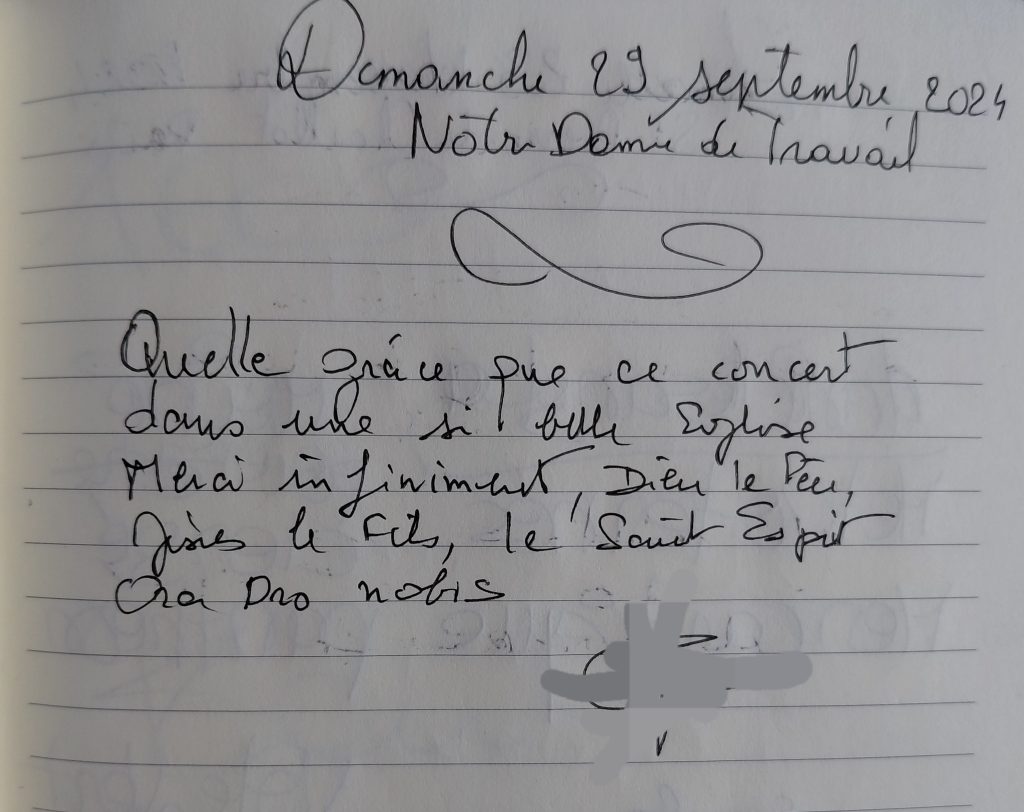 Dimanche 29 septembre 2024
Notre Dame du Travail
Quelle grâce que ce concert
dans une si belle Eglise
Merci infiniment, Dieu le Père,
Jésus le Fils, le Saint Esprit
Ora pro nobis